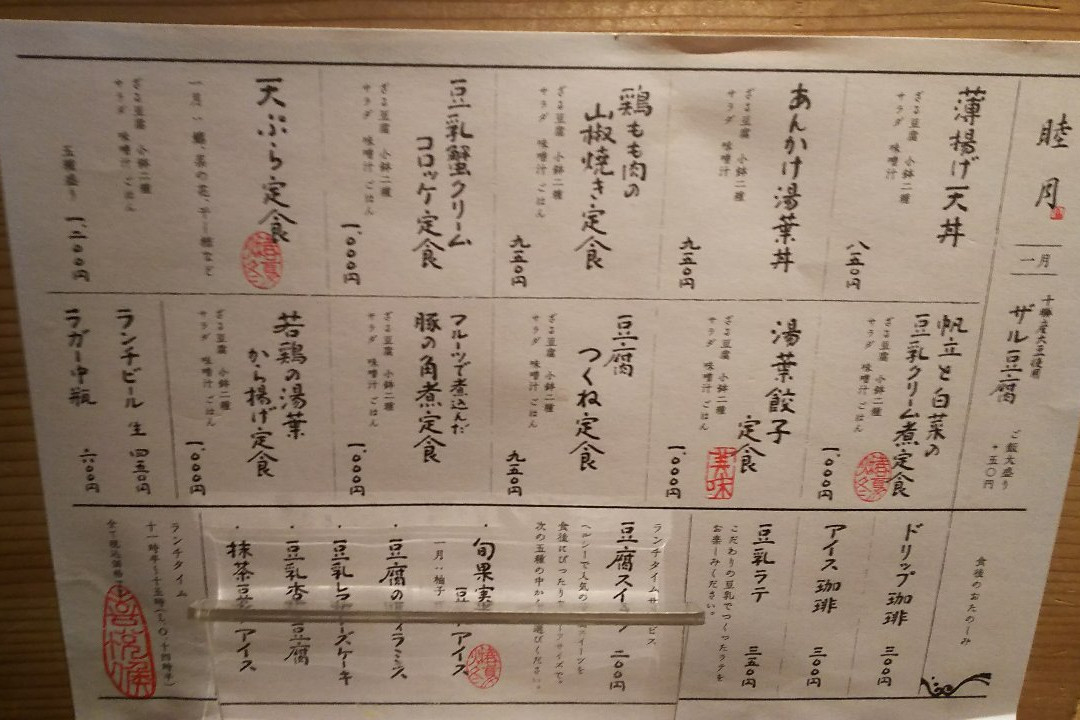 睦月
一月
十勝産大豆使用
ザル豆腐
ご飯大盛り
+五〇円
薄揚げ天丼
ざる豆腐 小鉢二種
サラダ 味噌汁
八五〇円
あんかけ湯葉丼
ざる豆腐 小鉢二種
サラダ 味噌汁
九五〇円
鶏もも肉の
山椒焼き定食
ざる豆腐 小鉢二種
サラダ 味噌汁 ごはん
九五〇円
豆乳蟹クリーム
コロッケ定食
ざる豆腐 小鉢二種
サラダ 味噌汁 ごはん
一、〇〇〇円
天ぷら定食
ざる豆腐 小鉢二種
サラダ 味噌汁 ごはん
五種盛り 一、二〇〇円
帆立と白菜の
豆乳クリーム煮定食
ざる豆腐 小鉢二種
サラダ 味噌汁 ごはん
一、〇〇〇円
湯葉餃子
定食
ざる豆腐 小鉢二種
サラダ 味噌汁 ごはん
美味
一、〇〇〇円
豆腐
つくね定食
ざる豆腐 小鉢二種
サラダ 味噌汁 ごはん
九五〇円
フルーツで煮込んだ
豚の角煮定食
ざる豆腐 小鉢二種
サラダ 味噌汁 ごはん
一、〇〇〇円
若鶏の湯葉
から揚げ定食
ざる豆腐 小鉢二種
サラダ 味噌汁 ごはん
一、〇〇〇円
ランチビール 生 四五〇円
ラガー中瓶 六〇〇円
食後のおたのしみ
ドリップ珈琲 三〇〇円
アイス珈琲 三〇〇円
豆乳ラテ 三五〇円
こだわりの豆乳でつくったラテを
お楽しみください。
ランチタイムサービス
豆腐スイーツ 二〇〇円
ヘルシーで人気の スイーツを
食後にぴったり サイズで。
次の五種の中から お選びください。
・旬果実
豆 アイス
一月:柚子
・豆腐のティラミス
・豆乳レアチーズケーキ
・豆乳杏 豆腐
・抹茶豆 アイス
ランチタイム
十一時半〜十五時(L.O.十四時半)
全て税込価格